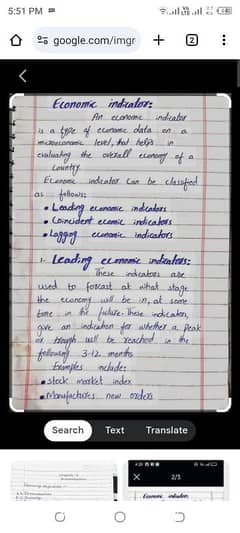 5:51 PM
google.com/imgr
2
Economic indicator:
An economic indicator
is a type of economic data on a
microeconomic level, that helps in
evaluating the overall economy of a
country.
Economic indicator can be classified
as follows:
• Leading economic indicators
• Coincident ecomic indicators
• Lagging economic indicators
1. Leading economic indicators:
These indicators are
used to forcast at what stage
the economy will be in, at some
time in the future. These indicators,
give an indication for whether a peak
or trough will be reached in the
following 3-12 months
Examples include:
• stock market index
• Manufacturers new orders
Search Text Translate
2/5
Economic indicator: